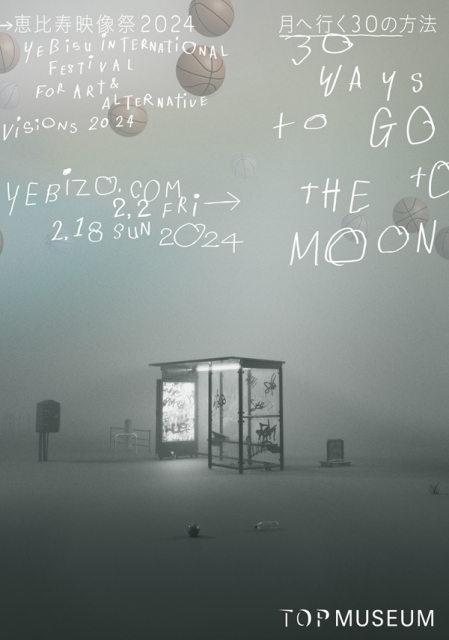 →恵比寿映像祭2024
YEBISU INTERNATIONAL
FESTIVAL
FOR ART &
ALTERNATIVE
VISIONS 2024
月へ行く30の方法
30
WAYS
to GO
to
THE
MOON
YEBIZO.COM
2.2 FRi →
2.18 SUN 2024
TOPMUSEUM